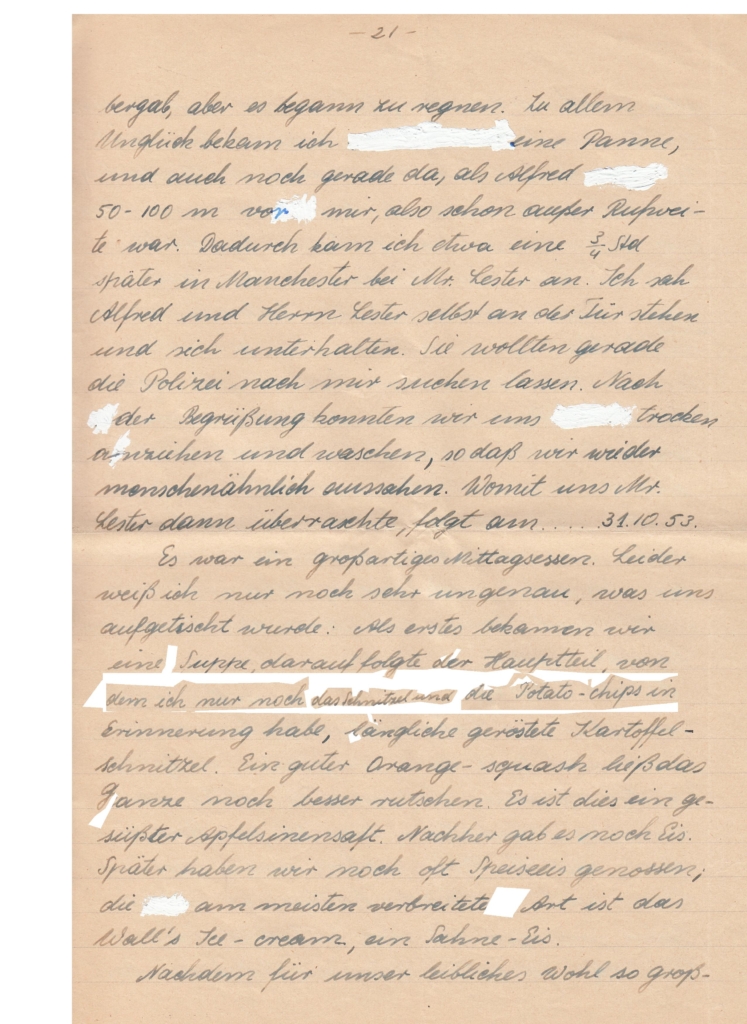 - 21 -
bergab, aber es begann zu regnen. Zu allem
Unglück bekam ich eine Panne,
und auch noch gerade da, als Alfred
50-100 m vor mir, also schon außer Rufwei-
te war. Dadurch kam ich etwa eine 3/4 Std
später in Manchester bei Mr. Lester an. Ich sah
Alfred und Herrn Lester selbst an der Tür stehen
und sich unterhalten. Sie wollten gerade
die Polizei nach mir suchen lassen. Nach
der Begrüßung konnten wir uns trocken
anziehen und waschen, sodaß wir wieder
menschenähnlich aussahen. Womit uns Mr.
Lester dann überraschte, folgt am ..... 31.10.53.
Es war ein großartiges Mittagsessen. Leider
weiß ich nur noch sehr ungenau, was uns
aufgetischt wurde: Als erstes bekamen wir
eine Suppe, darauf folgte der Hauptteil, von
dem ich nur noch das Schnitzel und die Potato-chips in
Erinnerung habe, längliche geröstete Kartoffel-
schnitzel. Ein guter Orange-squash ließ das
ganze noch besser rutschen. Es ist dies ein ge-
süßter Apfelsinensaft. Nachher gab es noch Eis.
Später haben wir noch oft Speiseeis genossen;
die am meisten verbreitete Art ist das
Wall's Ice-cream, ein Sahne-Eis.
Nachdem für unser leibliches Wohl so groß-